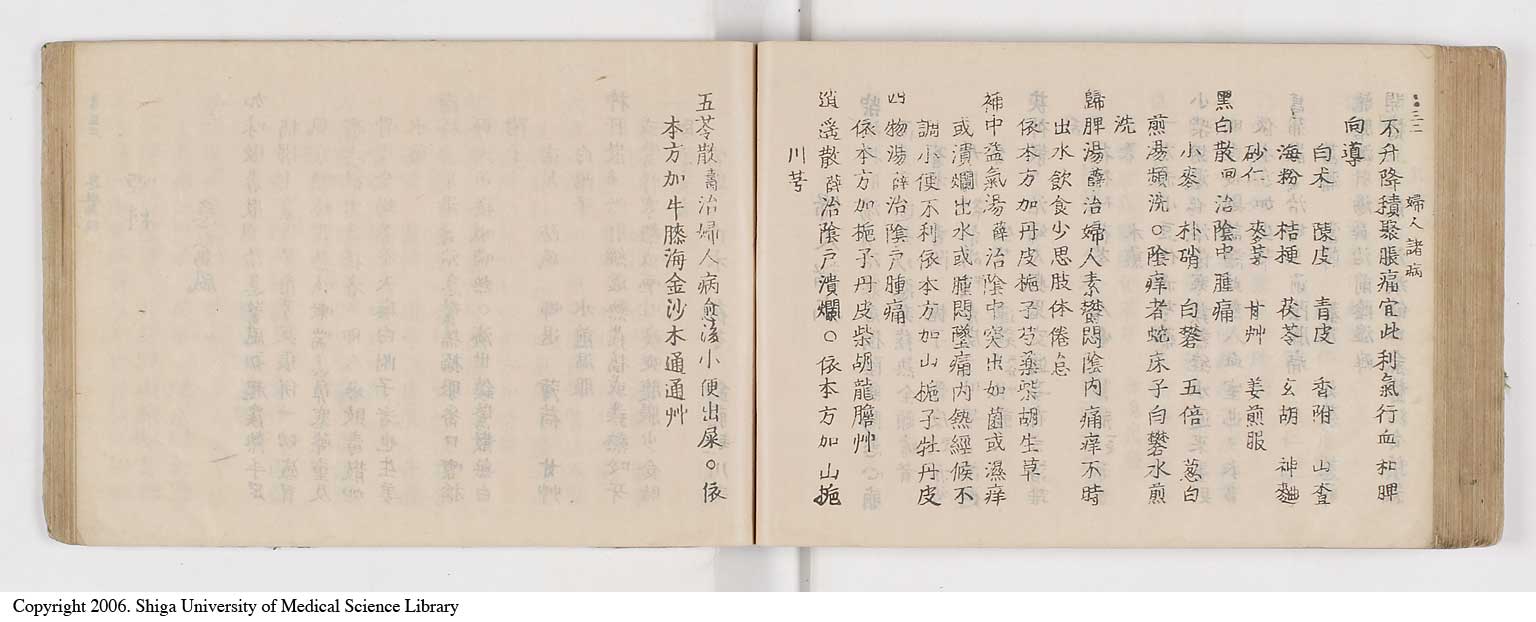 婦人諸病
不升降積聚脹痛宜此利氣行血和脾
向導
白朮 陳皮 青皮 香附 山査
海粉 桔梗 茯苓 玄胡 神麯
砂仁 麥芽 甘艸 姜煎服
黑白散回治陰中腫痛
小麥 朴硝 白礬 五倍 葱白
煎湯頻洗○陰痒者蛇床子白礬水煎
洗
歸脾湯薛治婦人素欝悶陰内痛痒不時
出水飲食少思肢体倦怠
依本方加丹皮梔子芍藥柴胡生草
補中益氣湯薛治陰中突出如菌或濕痒
或潰爛出水或腫悶墜痛内熱經候不
調小便不利依本方加山梔子牡丹皮
四物湯薛治陰戸腫痛
依本方加梔子丹皮柴胡龍膽艸
逍遥散薛治陰戸潰爛○依本方加山梔
川芎
五苓散 治婦人病愈後小便出屎○依
本方加牛膝海金沙木通通艸
Copyright 2006. Shiga University of Medical Science Library